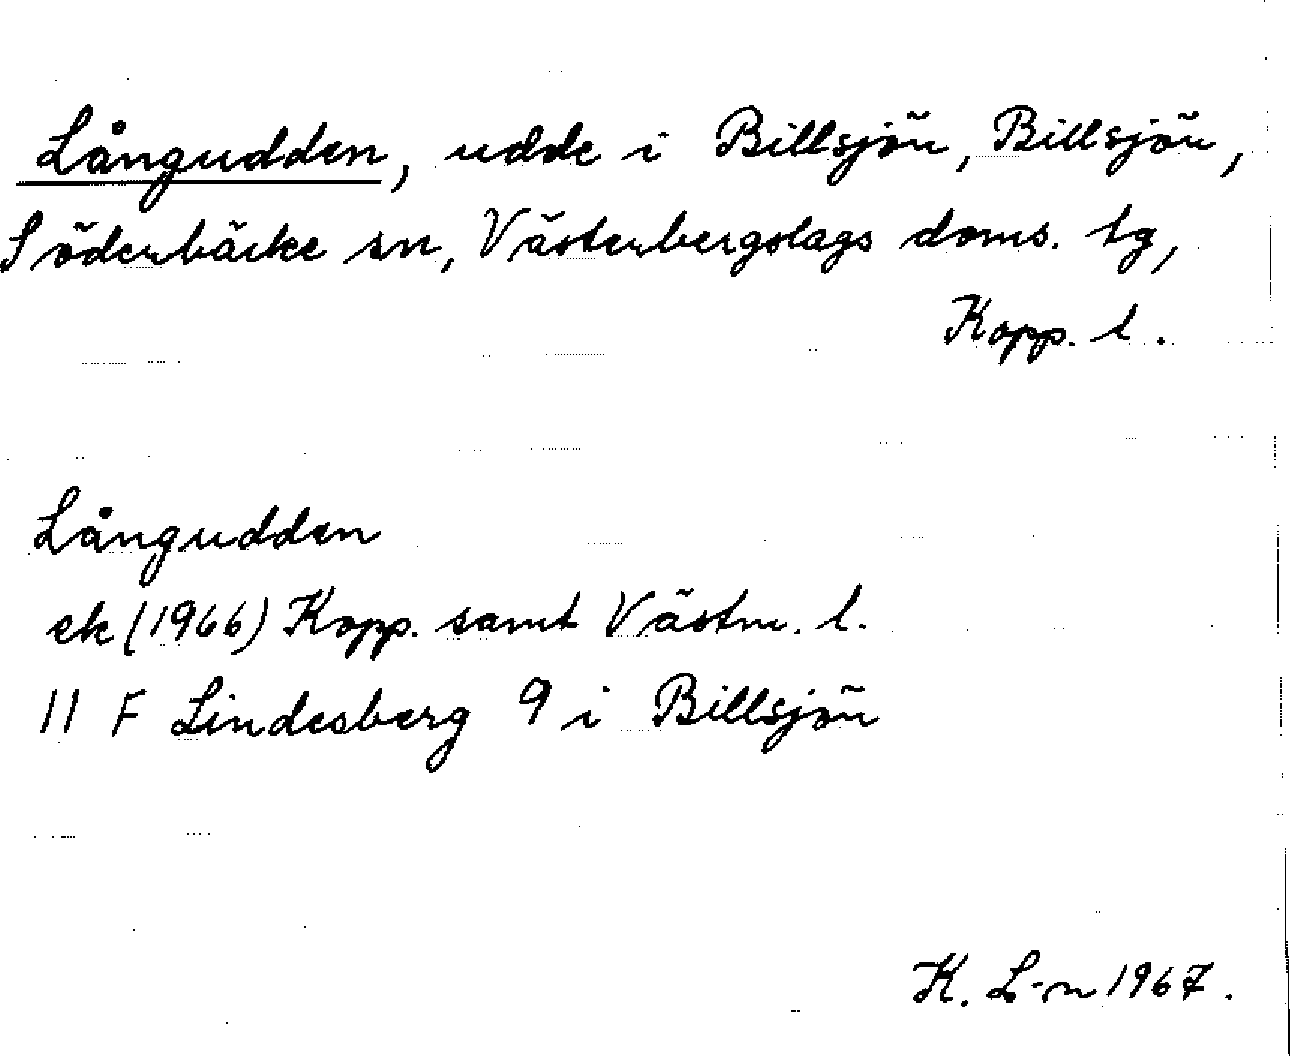 Långudden, udde i Billsjön, Billsjön,
Söderbärke sn, Västerbergslags doms. tg,
Kopp. l.
Långudden
ek (1966) Kopp. samt Västm. l.
11 F Lindesberg 9 i Billsjön
K. L-n 1967.